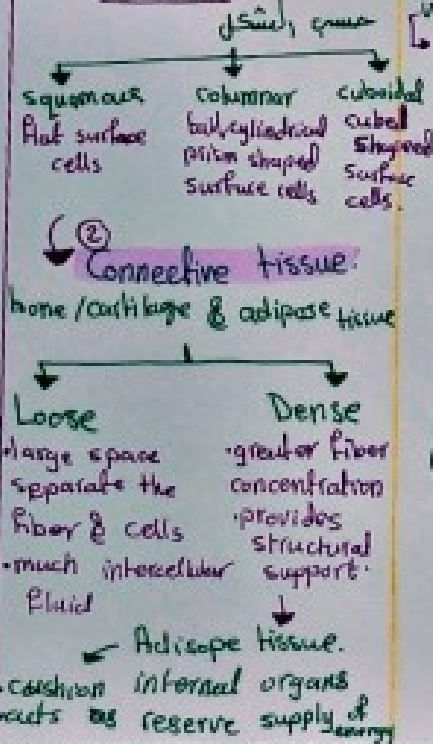 squamous
flat surface
cells
columnar
tall, cylindrical
prism shaped
surface cells
cuboidal
cubed
shaped
surface
cells.
②
Connective tissue.
bone/cartilage & adipose tissue
Loose
•large space
separate the
fiber & cells
•much intercellular
fluid
Dense
•greater fiber
concentration
•provides
structural
support.
Adisope tissue.
•cushion internal organs
acts as reserve supply of energy